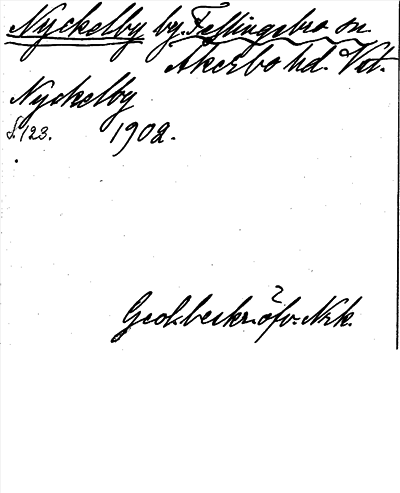 Nyckelby by. Fellingsbro sn.
Åkerbo hd. Vst.
Nyckelby
S. 123. 1902.
Geol. beskr. öfv. Nrk.